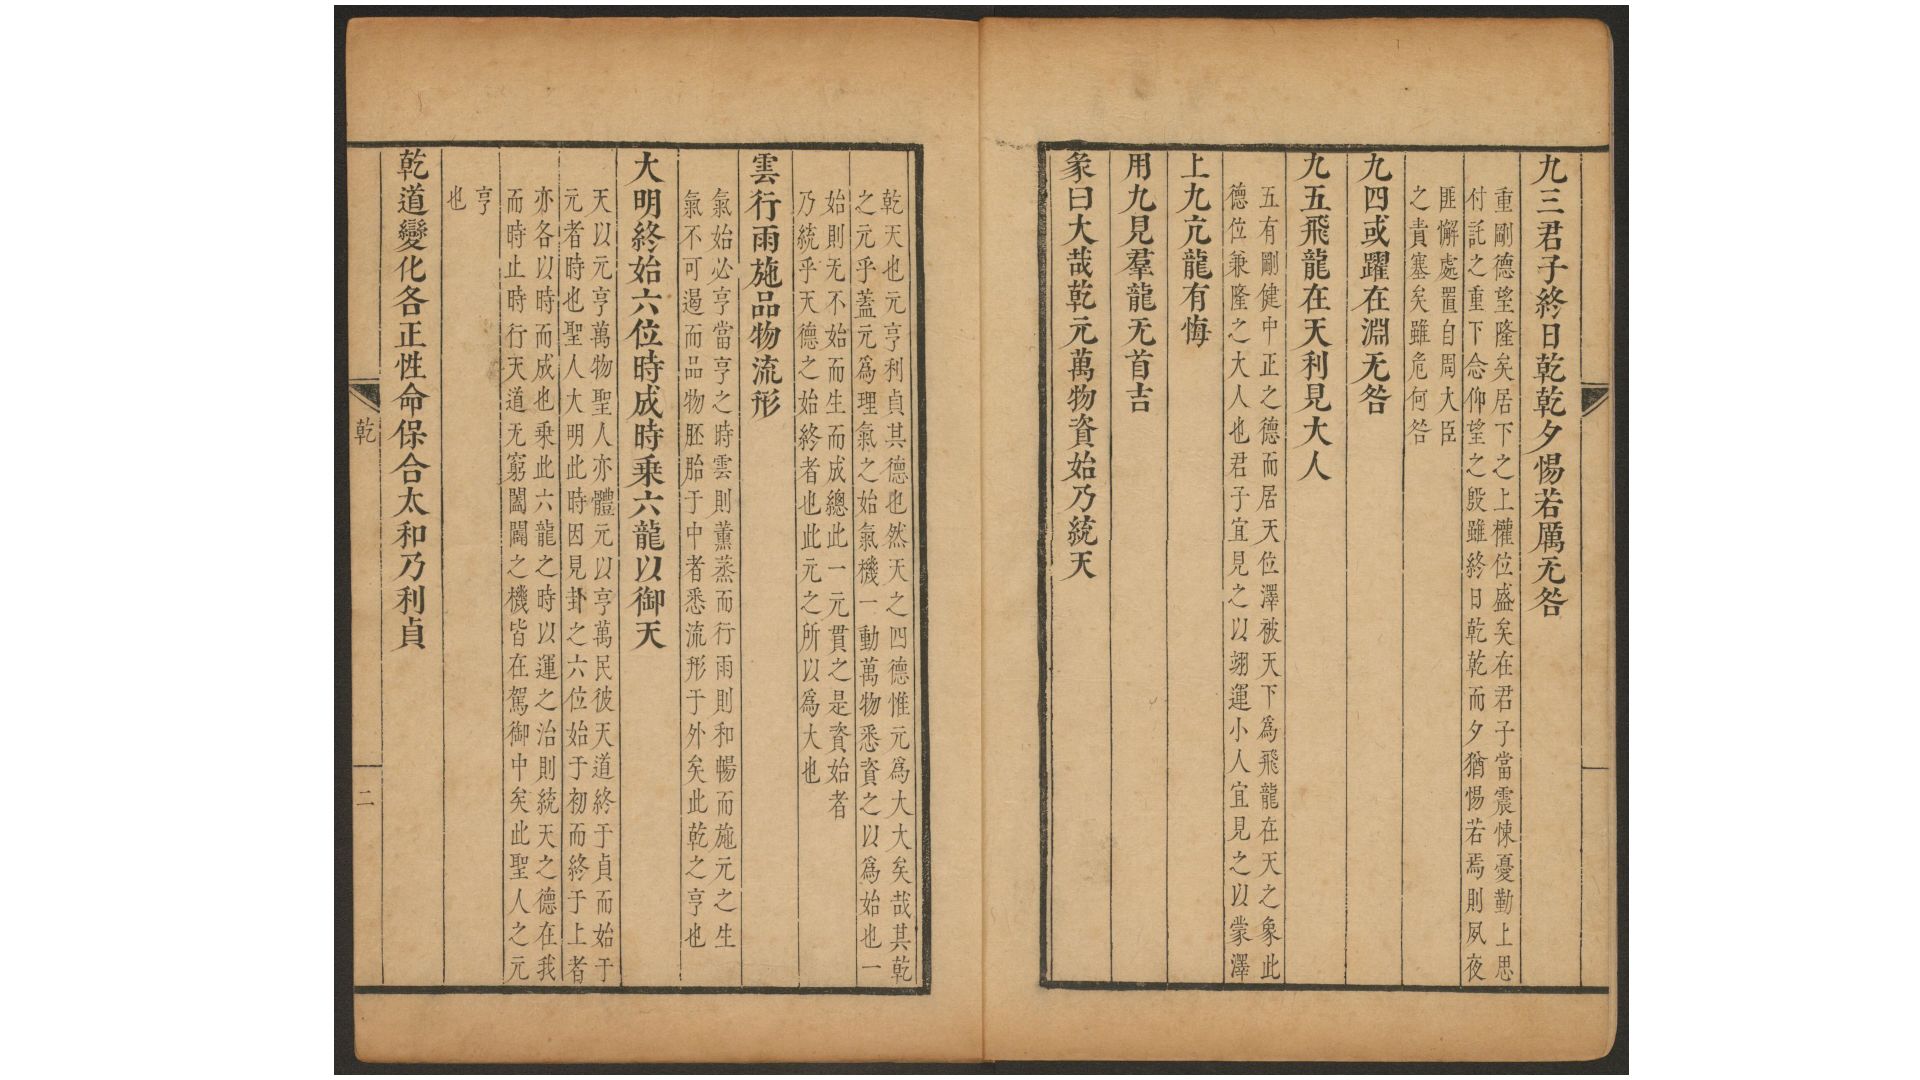 九三君子終日乾乾夕惕若厲无咎
重剛德望隆矣居下之上權位盛矣在君子當震悚憂勤上思
付託之重下念仰望之殷雖終日乾乾而夕猶惕若焉則夙夜
匪懈處置自周大臣
之責塞矣雖危何咎
九四或躍在淵无咎
九五飛龍在天利見大人
五有剛健中正之德而居天位澤被天下爲飛龍在天之象此
德位兼隆之大人也君子宜見之以翊運小人宜見之以蒙澤
上九亢龍有悔
用九見羣龍无首吉
彖曰大哉乾元萬物資始乃統天
乾天也元亨利貞其德也然天之四德惟元爲大大矣哉其乾
之元乎蓋元爲理氣之始氣機一動萬物悉資之以爲始也一
始則无不始而生而成總此一元貫之是資始者
乃統乎天德之始終者也此元之所以爲大也
雲行雨施品物流形
氣始必亨當亨之時雲則薰蒸而行雨則和暢而施元之生
氣不可遏而品物胚胎于中者悉流形于外矣此乾之亨也
大明終始六位時成時乘六龍以御天
天以元亨萬物聖人亦體元以亨萬民彼天道終于貞而始于
元者時也聖人大明此時因見卦之六位始于初而終于上者
亦各以時而成也乘此六龍之時以運之治則統天之德在我
而時止時行天道无窮闔闢之機皆在駕御中矣此聖人之元
亨
也
乾道變化各正性命保合太和乃利貞
乾
二